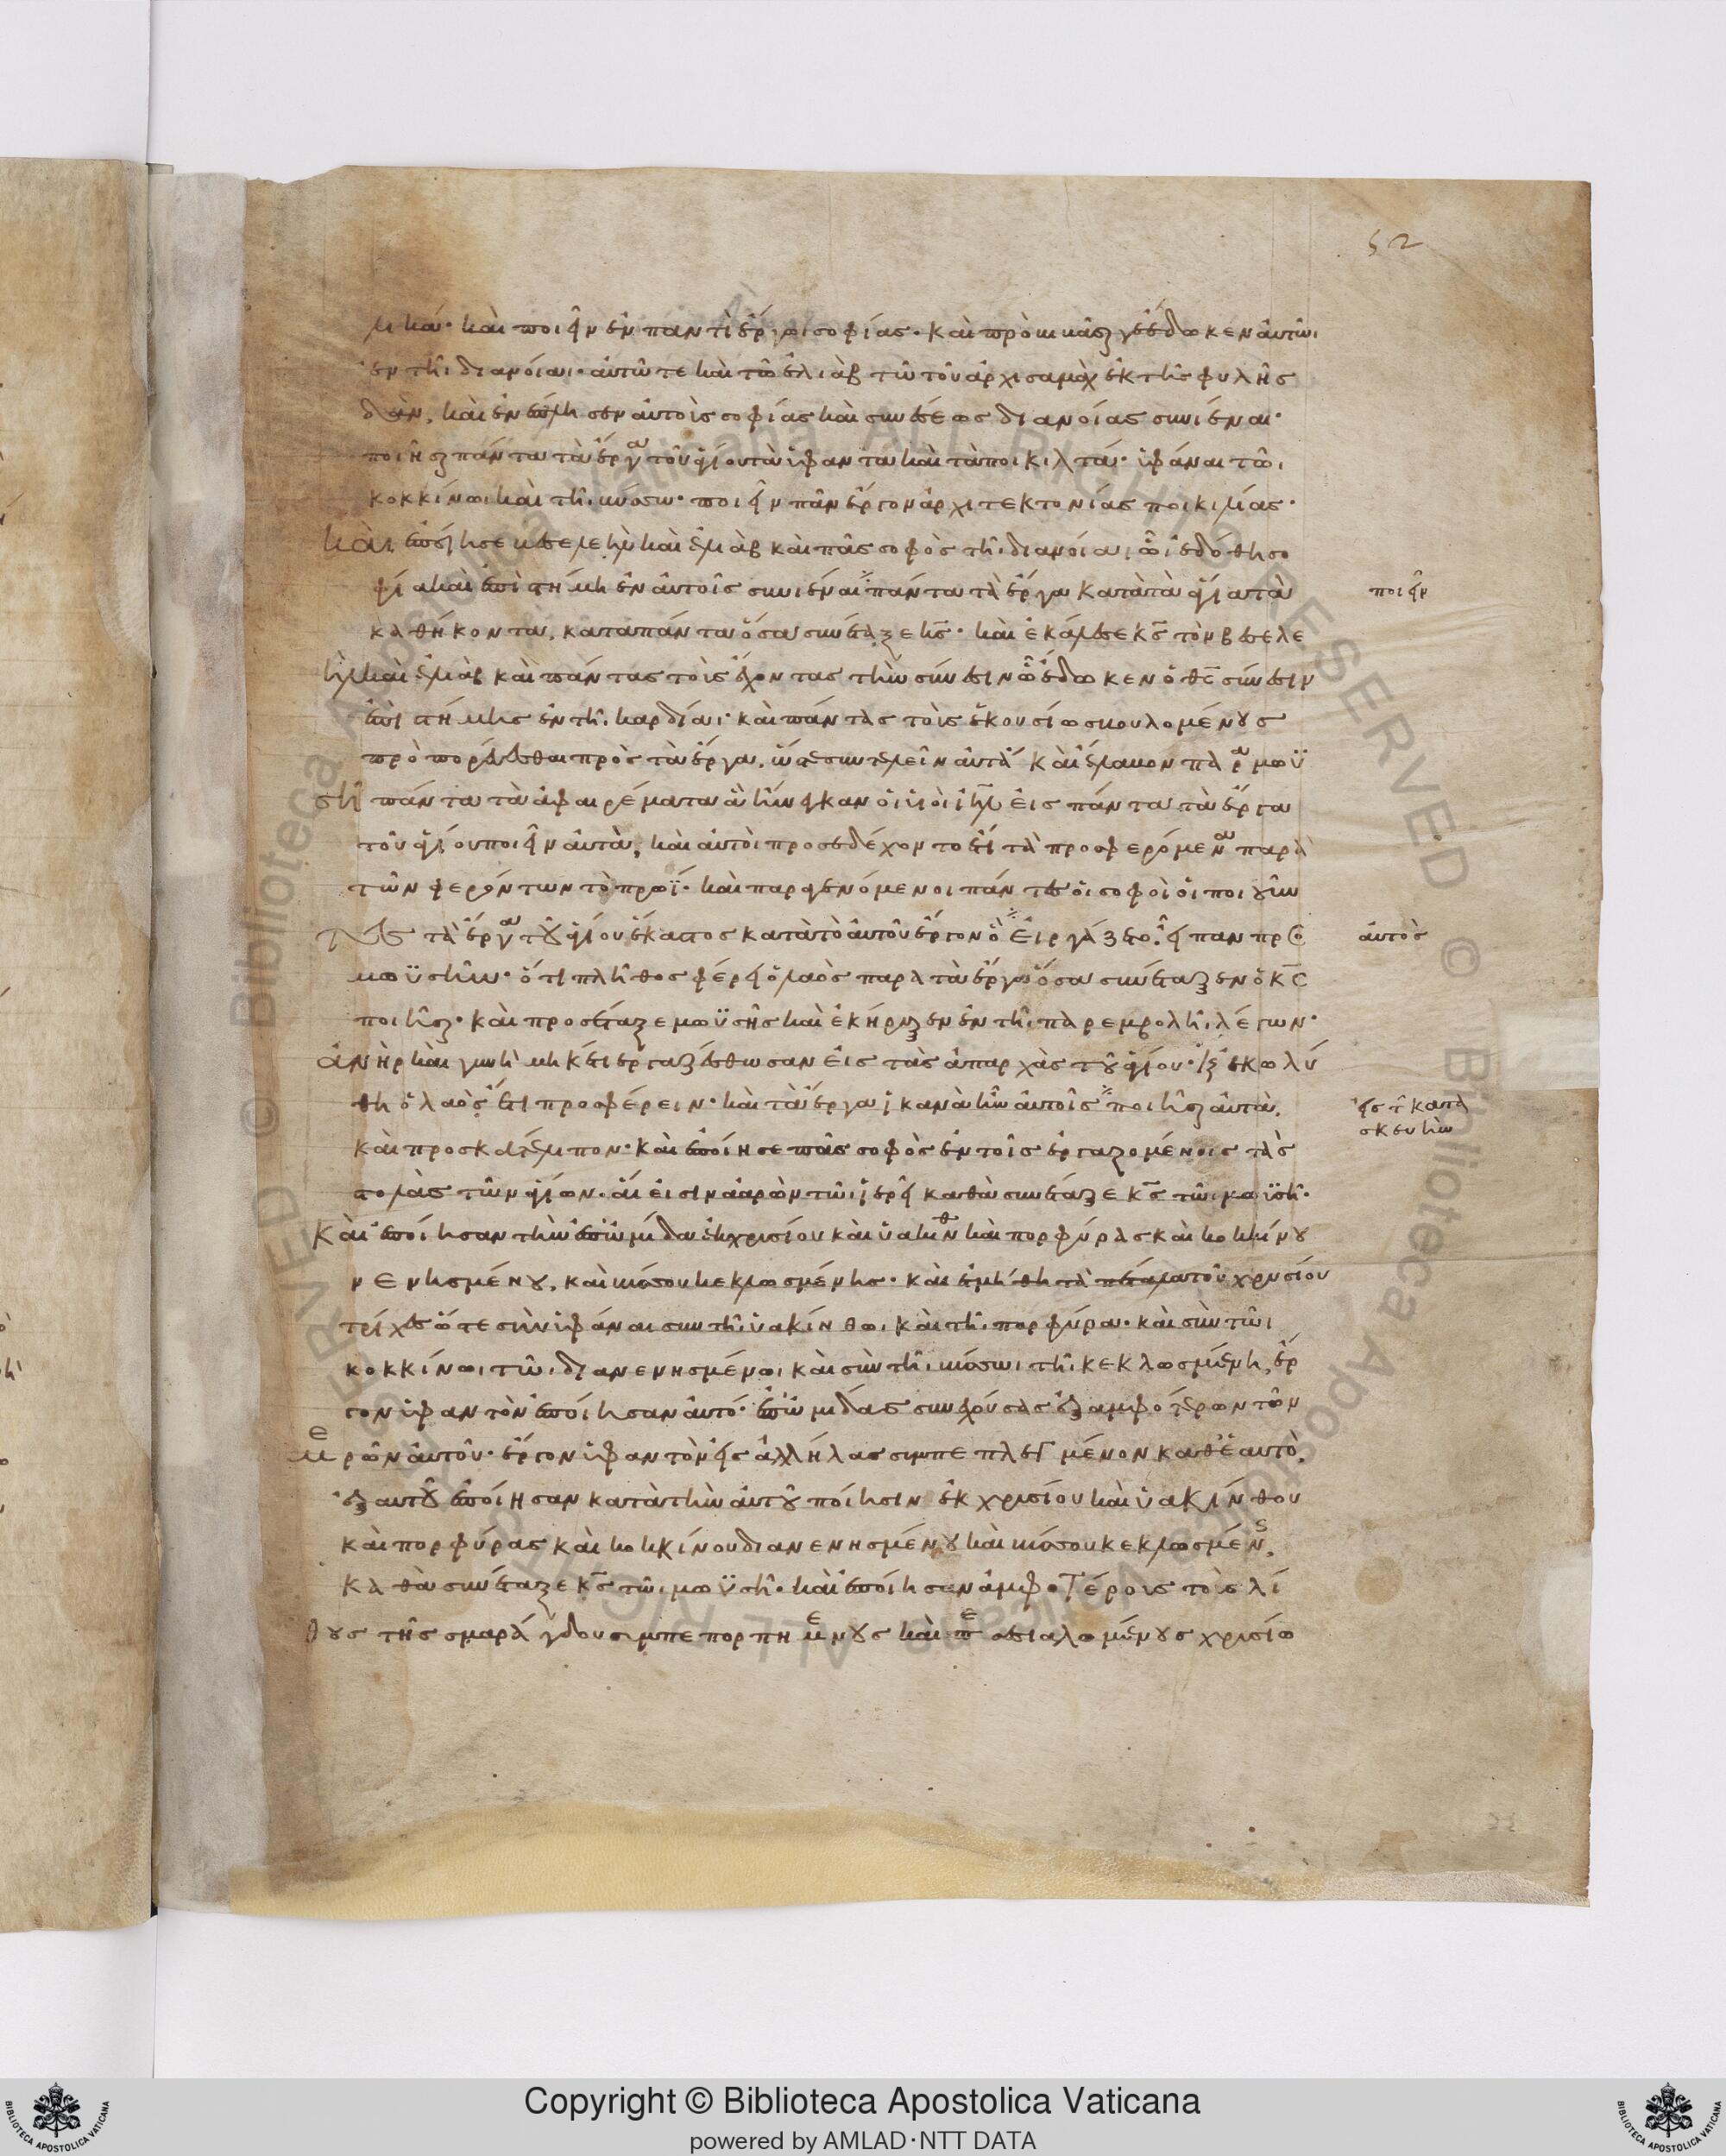 52
λικά· καὶ ποιεῖν ἐν παντὶ ἔργωι σοφίας· καὶ προβιβάσαι γε ἔδωκεν αὐτῶι
ἐν τῆι διανοίαι· αὐτῶ τε καὶ τῶ ἐλιὰβ τῶ τοῦ ἀρχισαμὰχ ἐκ τῆς φυλῆς
δάν. καὶ ἐνέπλησεν αὐτοὺς σοφίας καὶ συνέσεως διανοίας συνιέναι·
ποιῆσαι πάντα τὰ ἔργα τοῦ ἁγίου τὰ ὑφαντὰ καὶ τὰ ποικιλτά· ὑφάναι τῶι
κοκκίνωι καὶ τῆι βύσσω· ποιεῖν πᾶν ἔργον ἀρχιτεκτονίας ποικιλίας·
καὶ ἐποίησε βεσελεὴλ καὶ ἐλιὰβ καὶ πᾶς σοφὸς τῆι διανοίαι, ὧι ἐδόθη σο
φία καὶ ἐπιστήμη ἐν αὐτοῖς συνιέναι πάντα τὰ ἔργα κατὰ τὰ ἅγια τὰ
ποιεῖν
καθήκοντα. κατὰ πάντα ὅσα συνέταξε κ̅ς̅· καὶ ἐκάλεσε κ̅ς̅ τὸν βεσελε
ὴλ καὶ ἐλιὰβ καὶ πάντας τοὺς ἔχοντας τὴν σύνεσιν ὧ ἔδωκεν ὁ θ̅ς̅ σύνεσιν
ἐπιστήμης ἐν τῆι καρδίαι· καὶ πάντας τοὺς ἑκουσίως βουλομένους
προσπορεύεσθαι πρὸς τὰ ἔργα. ὥστε συντελεῖν αὐτά· καὶ ἔλαβον παρὰ μωϋ
σῆ πάντα τὰ ἀφαιρέματα ἃ ἤνεγκαν οἱ υἱοὶ ι̅η̅λ̅ εἰς πάντα τὰ ἔργα
τοῦ ἁγίου ποιεῖν αὐτά, καὶ αὐτοὶ προσεδέχοντο ἔτι τὰ προσφερόμενα παρὰ
τῶν φερόντων τὸ πρωΐ· καὶ παρεγένοντο πάντες οἱ σοφοὶ οἱ ποιοῦν
τες τὰ ἔργα τοῦ ἁγίου ἕκαστος κατὰ τὸ αὐτοῦ ἔργον ὃ εἰργάζετο· εἶπαν πρὸς
αὐτὸς
μωϋσῆν· ὅτι πλῆθος φέρει ὁ λαὸς παρὰ τὰ ἔργα ὅσα συνέταξεν ὁ κ̅ς̅
ποιῆσαι· καὶ προσέταξε μωϋσῆς καὶ ἐκήρυξεν ἐν τῆι παρεμβολῆι λέγων·
ἀνὴρ καὶ γυνὴ μηκέτι ἐργαζέσθωσαν εἰς τὰς ἀπαρχὰς τοῦ ἁγίου· καὶ ἐκωλύ
θη ὁ λαὸς ἔτι προσφέρειν· καὶ τὰ ἔργα ἱκανὰ ἦν αὐτοῖς ποιῆσαι αὐτά.
εἰς τὴν κατα
σκευὴν
καὶ προσκατέλιπον· καὶ ἐποίησε πᾶς σοφὸς ἐν τοῖς ἐργαζομένοις τὰς
στολὰς τῶν ἁγίων. αἵ εἰσιν ἀαρὼν τῶι ἱερεῖ καθὰ συνέταξε κ̅ς̅ τῶι μωϋσῆ·
καὶ ἐποίησαν τὴν ἐπωμίδα ἐκ χρυσίου καὶ ὑακίνθου καὶ πορφύρας καὶ κοκκίνου
νενησμένου, καὶ βύσσου κεκλωσμένης· καὶ ἐτμήθη τὰ πέταλα τοῦ χρυσίου
τρίχες ὥστε συνυφάναι συν τῆι ὑακίνθωι καὶ τῆι πορφύραι· καὶ σὺν τῶι
κοκκίνωι τῶι διανενησμένωι καὶ σὺν τῆι βύσσωι τῆι κεκλωσμένη, ἔρ
γον ὑφαντὸν ἐποίησαν αὐτό· ἐπωμίδας συνεχούσας ἐξ ἀμφοτέρων τῶν
μερῶν αὐτοῦ· ἔργον ὑφαντὸν εἰς ἀλλήλας συμπεπλεγμένον καθ' ἑαυτό.
ἐξ αὐτοῦ ἐποίησαν κατὰ τὴν αὐτοῦ ποίησιν ἐκ χρυσίου καὶ ὑακίνθου
καὶ πορφύρας καὶ κοκκίνου διανενησμένου καὶ βύσσου κεκλωσμένης.
καθὰ συνέταξε κ̅ς̅ τῶι μωϋσῆ· καὶ ἐποίησαν ἀμφοτέρους τοὺς λί
θους τῆς σμαράγδου συμπεπορπημένους καὶ περισεσιαλωμένους χρυσίω
© Biblioteca Apostolica Vaticana ALL RIGHTS RESERVED
Copyright © Biblioteca Apostolica Vaticana
powered by AMLAD·NTT DATA